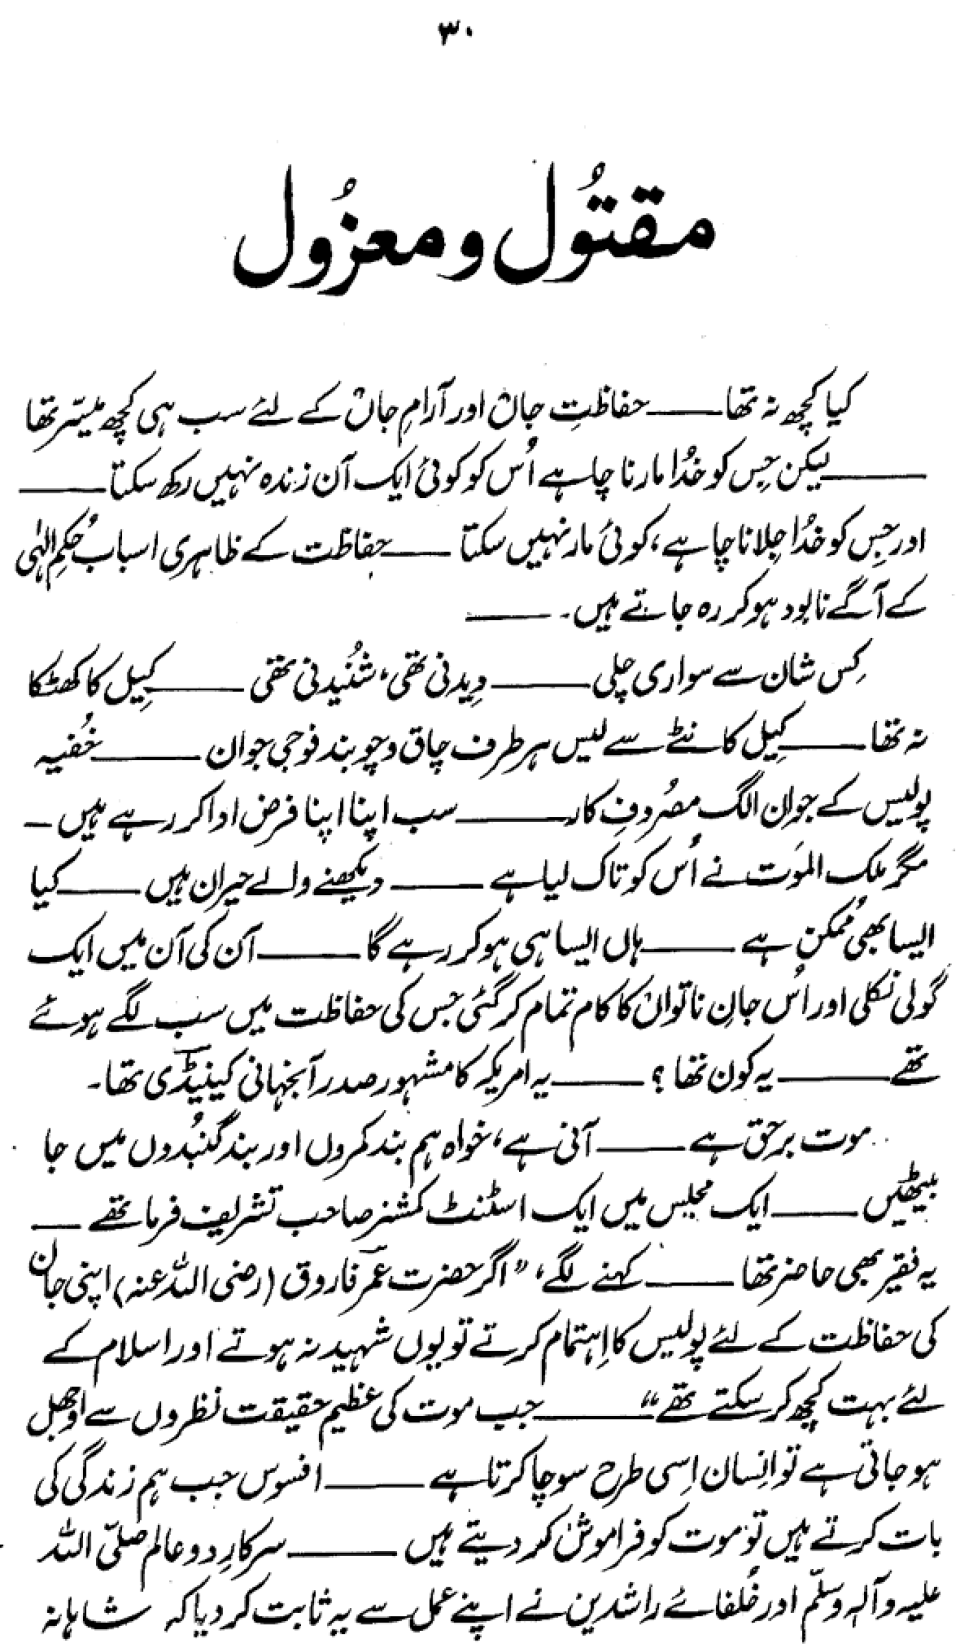 ۳۰
مقتُول و معزُول
کیا کچھ نہ تھا ــــــ حفاظتِ جاںؒ اور آرامِ جاںؒ کے لئے سب ہی کچھ میسّر تھا
ــــــ لیکن جِس کو خُدا مارنا چاہے اُس کو کوئی ایک آن زندہ نہیں رکھ سکتا ــــــ
اور جِس کو خُدا جِلانا چاہے، کوئی مار نہیں سکتا ــــــ حفاظت کے ظاہری اسباب حُکمِ الٰہی
کے آگے نابود ہو کر رہ جاتے ہیں۔ ــــــ
کِس شان سے سواری چلی ــــــ دِیدنی تھی، شُنیدنی تھی ــــــ کِیل کا کھٹکا
نہ تھا ــــــ کِیل کانٹے سے لیس ہر طرف چاق و چوبند فوجی جوان ــــــ خُفیہ
پولیس کے جوان الگ مصرُوفِ کار ــــــ سب اپنا اپنا فرض ادا کر رہے ہیں ــ
مگر ملک الموَت نے اُس کو تاک لیا ہے ــــــ دیکھنے والے حیران ہیں ــــــ کیا
ایسا بھی مُمکن ہے ــــــ ہاں ایسا ہی ہو کر رہے گا ــــــ آن کی آن میں ایک
گولی نکلی اور اُس جانِ ناتواں کا کام تمام کر گئی جس کی حفاظت میں سب لگے ہوئے
تھے ــــــ یہ کون تھا ؟ ــــــ یہ امریکہ کا مشہور صدر آنجہانی کینیڈی تھا۔
موت برحق ہے ــــــ آنی ہے، خواہ ہم بند کمروں اور بند گنبُدوں میں جا
بیٹھیں ــــــ ایک مجلس میں ایک اسٹنٹ کمشنر صاحب تشریف فرما تھے ــــ
یہ فقیر بھی حاضر تھا ــــــ کہنے لگے، "اگر حضرت عمر فاروق (رضی اللہ عنہ) اپنی جان
کی حفاظت کے لئے پولیس کا اِہتمام کرتے تو یوں شہید نہ ہوتے اور اسلام کے
لئے بہت کچھ کر سکتے تھے" ــــــ جب موت کی عظیم حقیقت نظروں سے اوجھل
ہو جاتی ہے تو انِسان اِسی طرح سوچا کرتا ہے ــــــ افسوس جب ہم زندگی کی
بات کرتے ہیں تو موت کو فراموش کر دیتے ہیں ــــــ سرکارِ دو عالم صلّی اللہ
علیہ وآلہٖ وسلّم اور خُلفائے راشدین نے اپنے عمل سے یہ ثابت کر دیا کہ شاہانہ